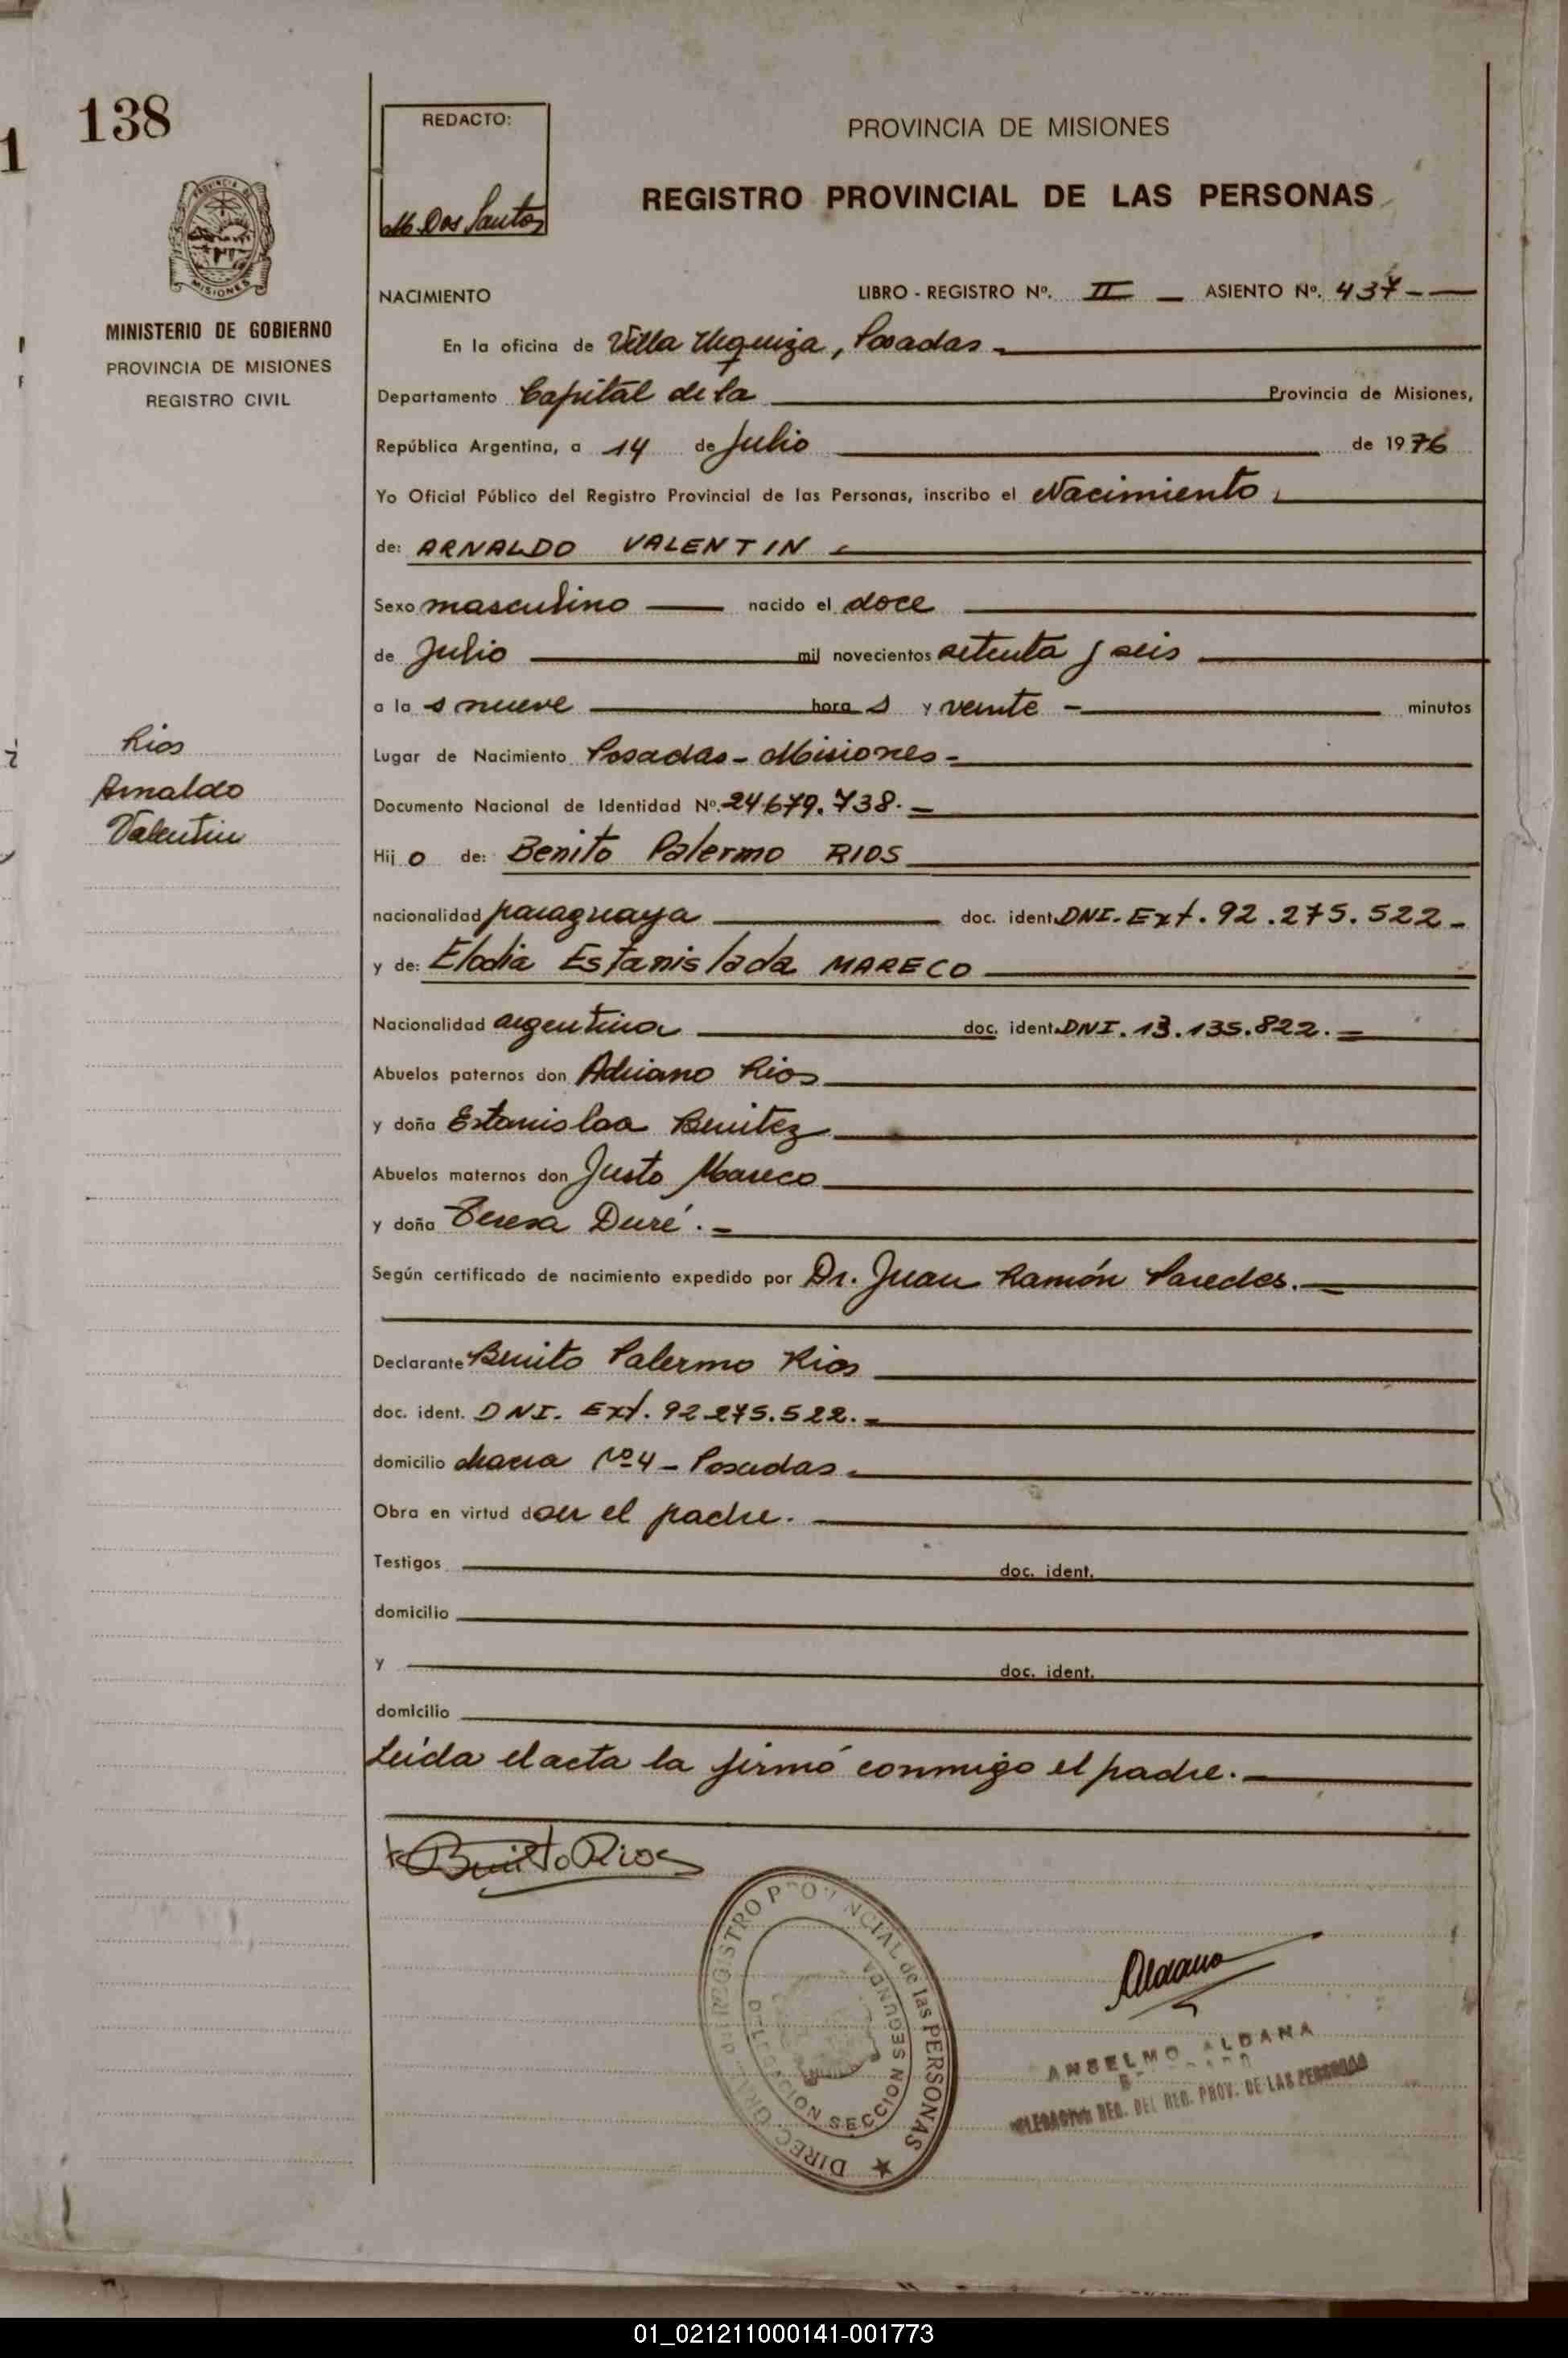 138
1
REDACTO:
M. Dos Santos
PROVINCIA DE MISIONES
REGISTRO PROVINCIAL DE LAS PERSONAS
PROVINCIA DE
MISIONES
MINISTERIO DE GOBIERNO
PROVINCIA DE MISIONES
REGISTRO CIVIL
NACIMIENTO LIBRO - REGISTRO Nº. II ASIENTO Nº. 437
En la oficina de Villa Urquiza, Posadas
Departamento Capital de la Provincia de Misiones,
República Argentina, a 14 de Julio de 1976
Yo Oficial Público del Registro Provincial de las Personas, inscribo el Nacimiento
de: ARNALDO VALENTIN
Sexo masculino nacido el doce
de Julio mil novecientos setenta y seis
a la s nueve hora s y veinte minutos
Lugar de Nacimiento Posadas - Misiones
Documento Nacional de Identidad Nº. 24.679.738.
Hij o de: Benito Palermo RIOS
nacionalidad paraguaya doc. ident. DNI. Ext. 92.275.522
y de: Elodia Estanislada MARECO
Nacionalidad argentina doc. ident. DNI. 13.135.822.
Abuelos paternos don Adriano Rios
y doña Estanislaa Benitez
Abuelos maternos don Justo Mareco
y doña Teresa Duré.
Según certificado de nacimiento expedido por Dr. Juan Ramón Paredes.
Declarante Benito Palermo Rios
doc. ident. DNI. Ext. 92.275.522.
domicilio chacra Nº 4 - Posadas
Obra en virtud d ser el padre.
Testigos doc. ident.
domicilio
y doc. ident.
domicilio
Leída el acta la firmó conmigo el padre.
Rios
Arnaldo
Valentin
Benito Rios
DIREC. GRAL. DEL REGISTRO PROVINCIAL de las PERSONAS
DELEGACION SECCION SEGUNDA
Aldana
ANSELMO ALDANA
DELEGACION REG. DEL REG. PROV. DE LAS PERSONAS
01_021211000141-001773